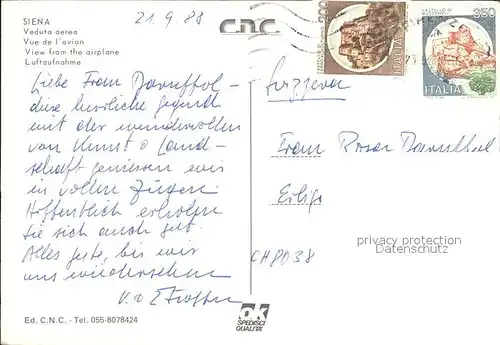 SIENA
Veduta aerea
Vue de l'avion
View from the airplane
Luftaufnahme
21.9.88
C.N.C.
200
ITALIA
350
ITALIA
Liebe Frau
diese herrliche Gegend
mit der wundervollen
von Kunst & Land-
schaft geniessen wir
in vollen Zügen
Hoffentlich erholen
Sie sich auch gut.
Alles gute, bis wir
uns wiedersehen
Svizzera
Frau Rosa
CH8038
privacy protection
Datenschutz
Ed. C.N.C. - Tel. 055-8078424
ok
SPEDISCI
QUALITÀ